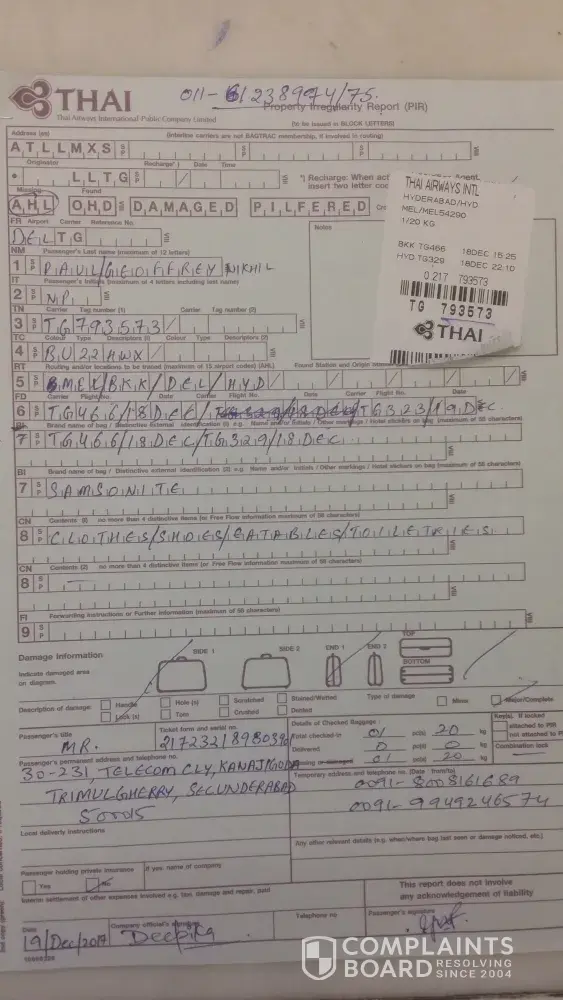 011-61238974/75.
THAI
Property Irregularity Report (PIR)
Thai Airways International Public Company Limited
(to be issued in BLOCK LETTERS)
Address (es) (Interline carriers are not BAGTRAC membership, if involved in routing)
ATLLMXS
Originator Recharge* / Date Time
LLTG
*) Recharge: When
insert two letter
Missing Found
AHL OHD DAMAGED PILFERED
FR Airport Carrier Reference No.
DELTG
Notes
NM Passenger's Last name (maximum of 12 letters)
1 PAUL/GEOFFREY NIKHIL
IT Passenger's Initials (maximum of 4 letters including last name)
2 NP
TN Carrier Tag number (1) Carrier Tag number (2)
3 TG793573/
TC Colour Type Descriptors (1) Colour Type Descriptors (2)
4 BU22HWX/
RT Routing and/or locations to be traced (maximum of 15 airport codes) (AHL) Found Station and Origin
5 MEL/BKK/DEL/HYD
FD Carrier Flight No. Date Carrier Flight No. Date Carrier Flight No. Date
6 TG466/18DEC/TG323/19DEC
BI Brand name of bag / Distinctive external identification (1) e.g. Name and/or Initials / Other markings / Hotel stickers on bag (maximum of 58 characters)
7 TG466/18DEC/TG329/18DEC
BI Brand name of bag / Distinctive external identification (2) e.g. Name and/or Initials / Other markings / Hotel stickers on bag (maximum of 58 characters)
7 SAMSONITE
CN Contents (1) no more than 4 distinctive items (or Free Flow information maximum of 58 characters)
8 CLOTHES/SHOES/EATABLES/TOILETRIES
CN Contents (2) no more than 4 distinctive items (or Free Flow information maximum of 58 characters)
8
FI Forwarding Instructions or Further information (maximum of 58 characters)
9
THAI AIRWAYS INTL
HYDERABAD/HYD
MEL/MEL54290
1/20 KG
BKK TG466 18DEC 15:25
HYD TG329 18DEC 22:10
0 217 793573
TG 793573
THAI
Damage Information
SIDE 1 SIDE 2 END 1 END 2 TOP
BOTTOM
Indicate damaged area
on diagram.
Description of damage: Handle Hole (s) Scratched Stained/Wetted Type of damage Minor Major/Complete
Lock (s) Torn Crushed Dented
Passenger's title
MR.
Ticket form and serial no.
Details of Checked Baggage:
Total checked in 01 pc(s) 20 kg
Delivered 0 pc(s) 0 kg
Missing or damaged 01 pc(s) 20 kg
Key(s) if locked
attached to PIR
not attached to PIR
Combination lock
Passenger's permanent address and telephone no.
30-231, TELECOM CLY, KANAJIGUDA
TRIMULGHERRY, SECUNDERABAD
500015
Temporary address and telephone no. (Date from/to)
0091-8008161689
0091-9949246574
Local delivery instructions
Any other relevant details (e.g. when/where bag last seen or damage noticed, etc.)
Passenger holding private insurance If yes: name of company
Yes No
Interim settlement of other expenses involved e.g. taxi, damage and repair, paid
This report does not involve
any acknowledgement of liability
Date
19/Dec/2017
Company official's signature
Deepika
Telephone no
Passenger's signature
COMPLAINTS
BOARD RESOLVING
SINCE 2004